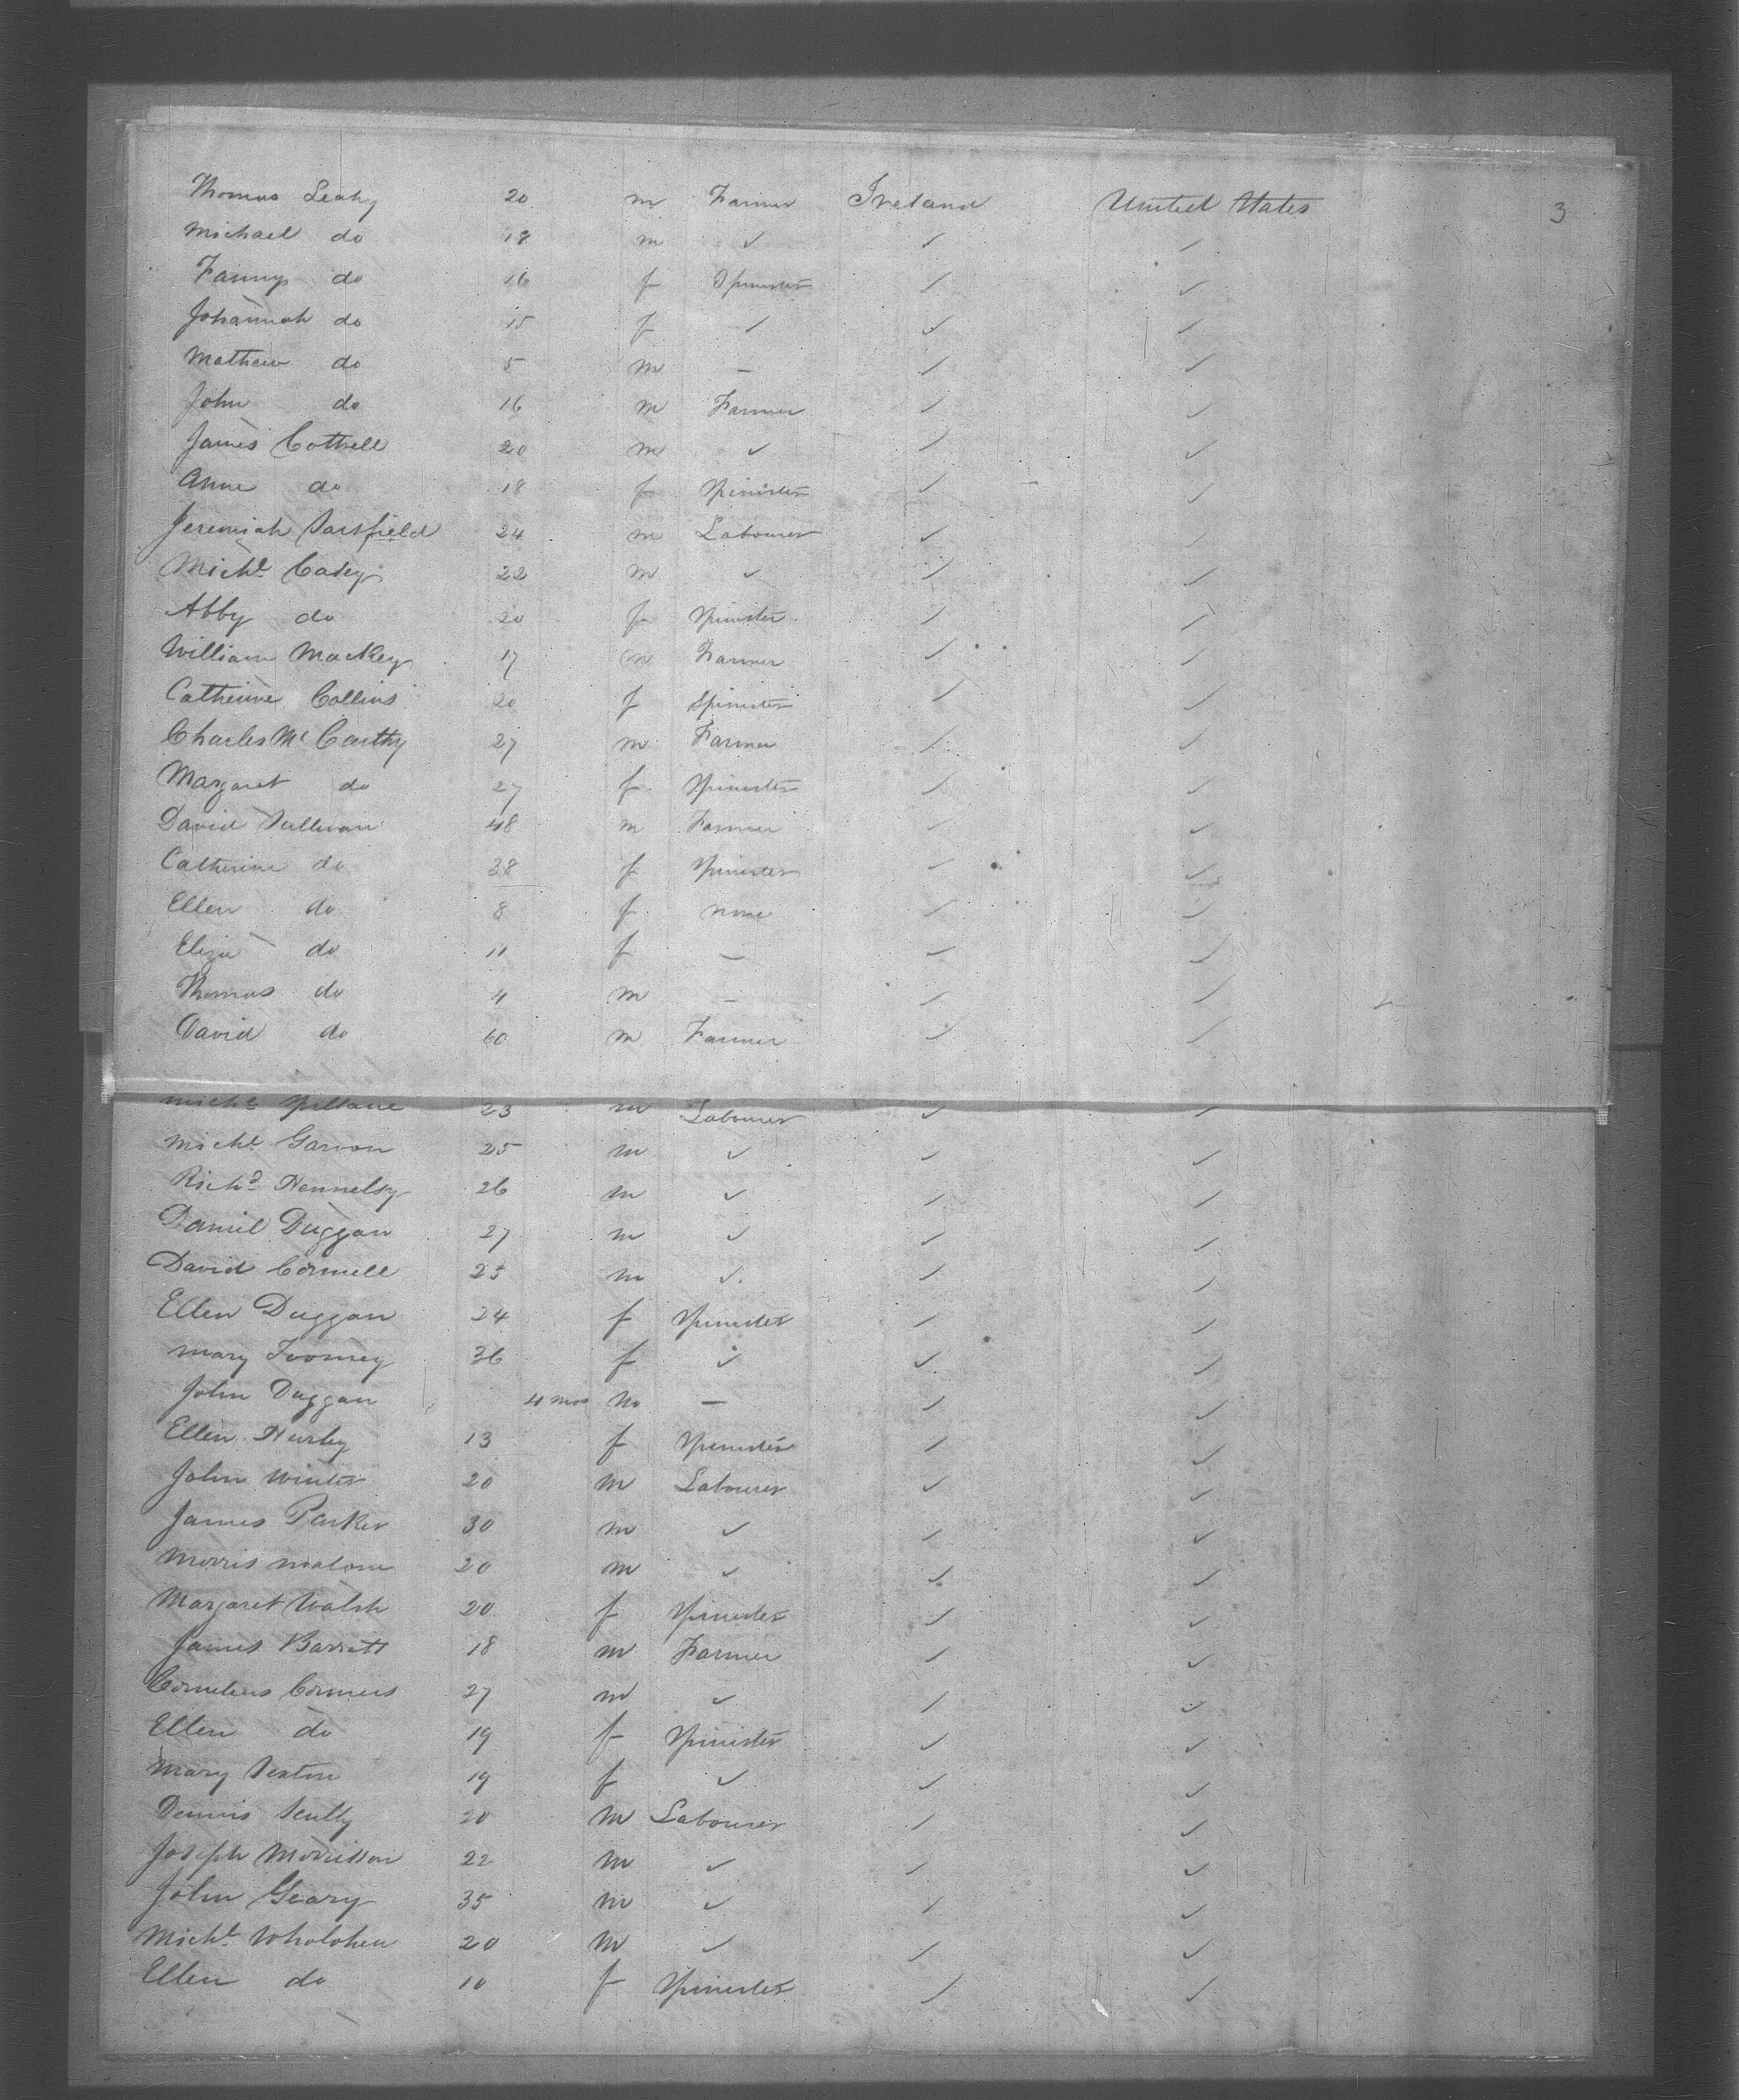 Thomas Leahy 20 m Farmer Ireland United States 3
Michael do 18 m ✓ ✓ ✓
Fanny do 16 f Spinster ✓ ✓
Johannah do 15 f ✓ ✓ ✓
Mathew do 5 m – ✓ ✓
John do 16 m Farmer ✓ ✓
James Cottrell 20 m ✓ ✓ ✓
Anne do 18 f Spinister ✓ ✓
Jeremiah Sarsfield 24 m Labourer ✓ ✓
Michl Casey 22 m ✓ ✓ ✓
Abby do 20 f Spinster ✓ ✓
William Mackey 17 m Farmer ✓ ✓
Catherine Collins 20 f Spinister ✓ ✓
Charles Mc Carthy 27 m Farmer ✓ ✓
Margaret do 27 f Spinister ✓ ✓
David Sullivan 48 m Farmer ✓ ✓
Catherine do 38 f Spinister ✓ ✓
Ellen do 8 f none ✓ ✓
Eliza do 11 f – ✓ ✓
Thomas do 4 m – ✓ ✓
David do 60 m Farmer ✓ ✓
Michl Spillane 23 m Labourer ✓ ✓
Michl Garvon 25 m ✓ ✓ ✓
Richd 26 m ✓ ✓ ✓
Daniel Duggan 27 m ✓ ✓ ✓
David Connell 25 m ✓ ✓ ✓
Ellen Duggan 24 f Spinister ✓ ✓
Mary Toomey 36 f ✓ ✓ ✓
John Duggan 4 mos m – ✓ ✓
Ellen Hurley 13 f Spinister ✓ ✓
John Winter 20 m Labourer ✓ ✓
James Parker 30 m ✓ ✓ ✓
Morris Malone 20 m ✓ ✓ ✓
Margaret Walsh 20 f Spinister ✓ ✓
James Barrett 18 m Farmer ✓ ✓
Cornelius Conners 27 m ✓ ✓ ✓
Ellen do 19 f Spinister ✓ ✓
Mary Sexton 19 f ✓ ✓ ✓
Dennis Scully 20 m Labourer ✓ ✓
Joseph Morrisson 22 m ✓ ✓ ✓
John Geary 35 m ✓ ✓ ✓
Michl Wholohen 20 m ✓ ✓ ✓
Ellen do 10 f Spinister ✓ ✓